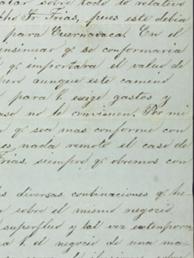 sobre todo lo relativo
Sr. Frias, pues este debia
para Cuernavaca. En el
insinuar q. se conformaria
q. importaba el valor de
bien aunque este camino
para l. exige gastos y
no le convienen. Por mi
q. sea mas conforme con
es, nada remoto el caso de
Frias, siempre q. obremos con
diversas combinaciones q. he
sobre el mismo negocio
superfluo y tal vez estempora
l. el negocio de una ma